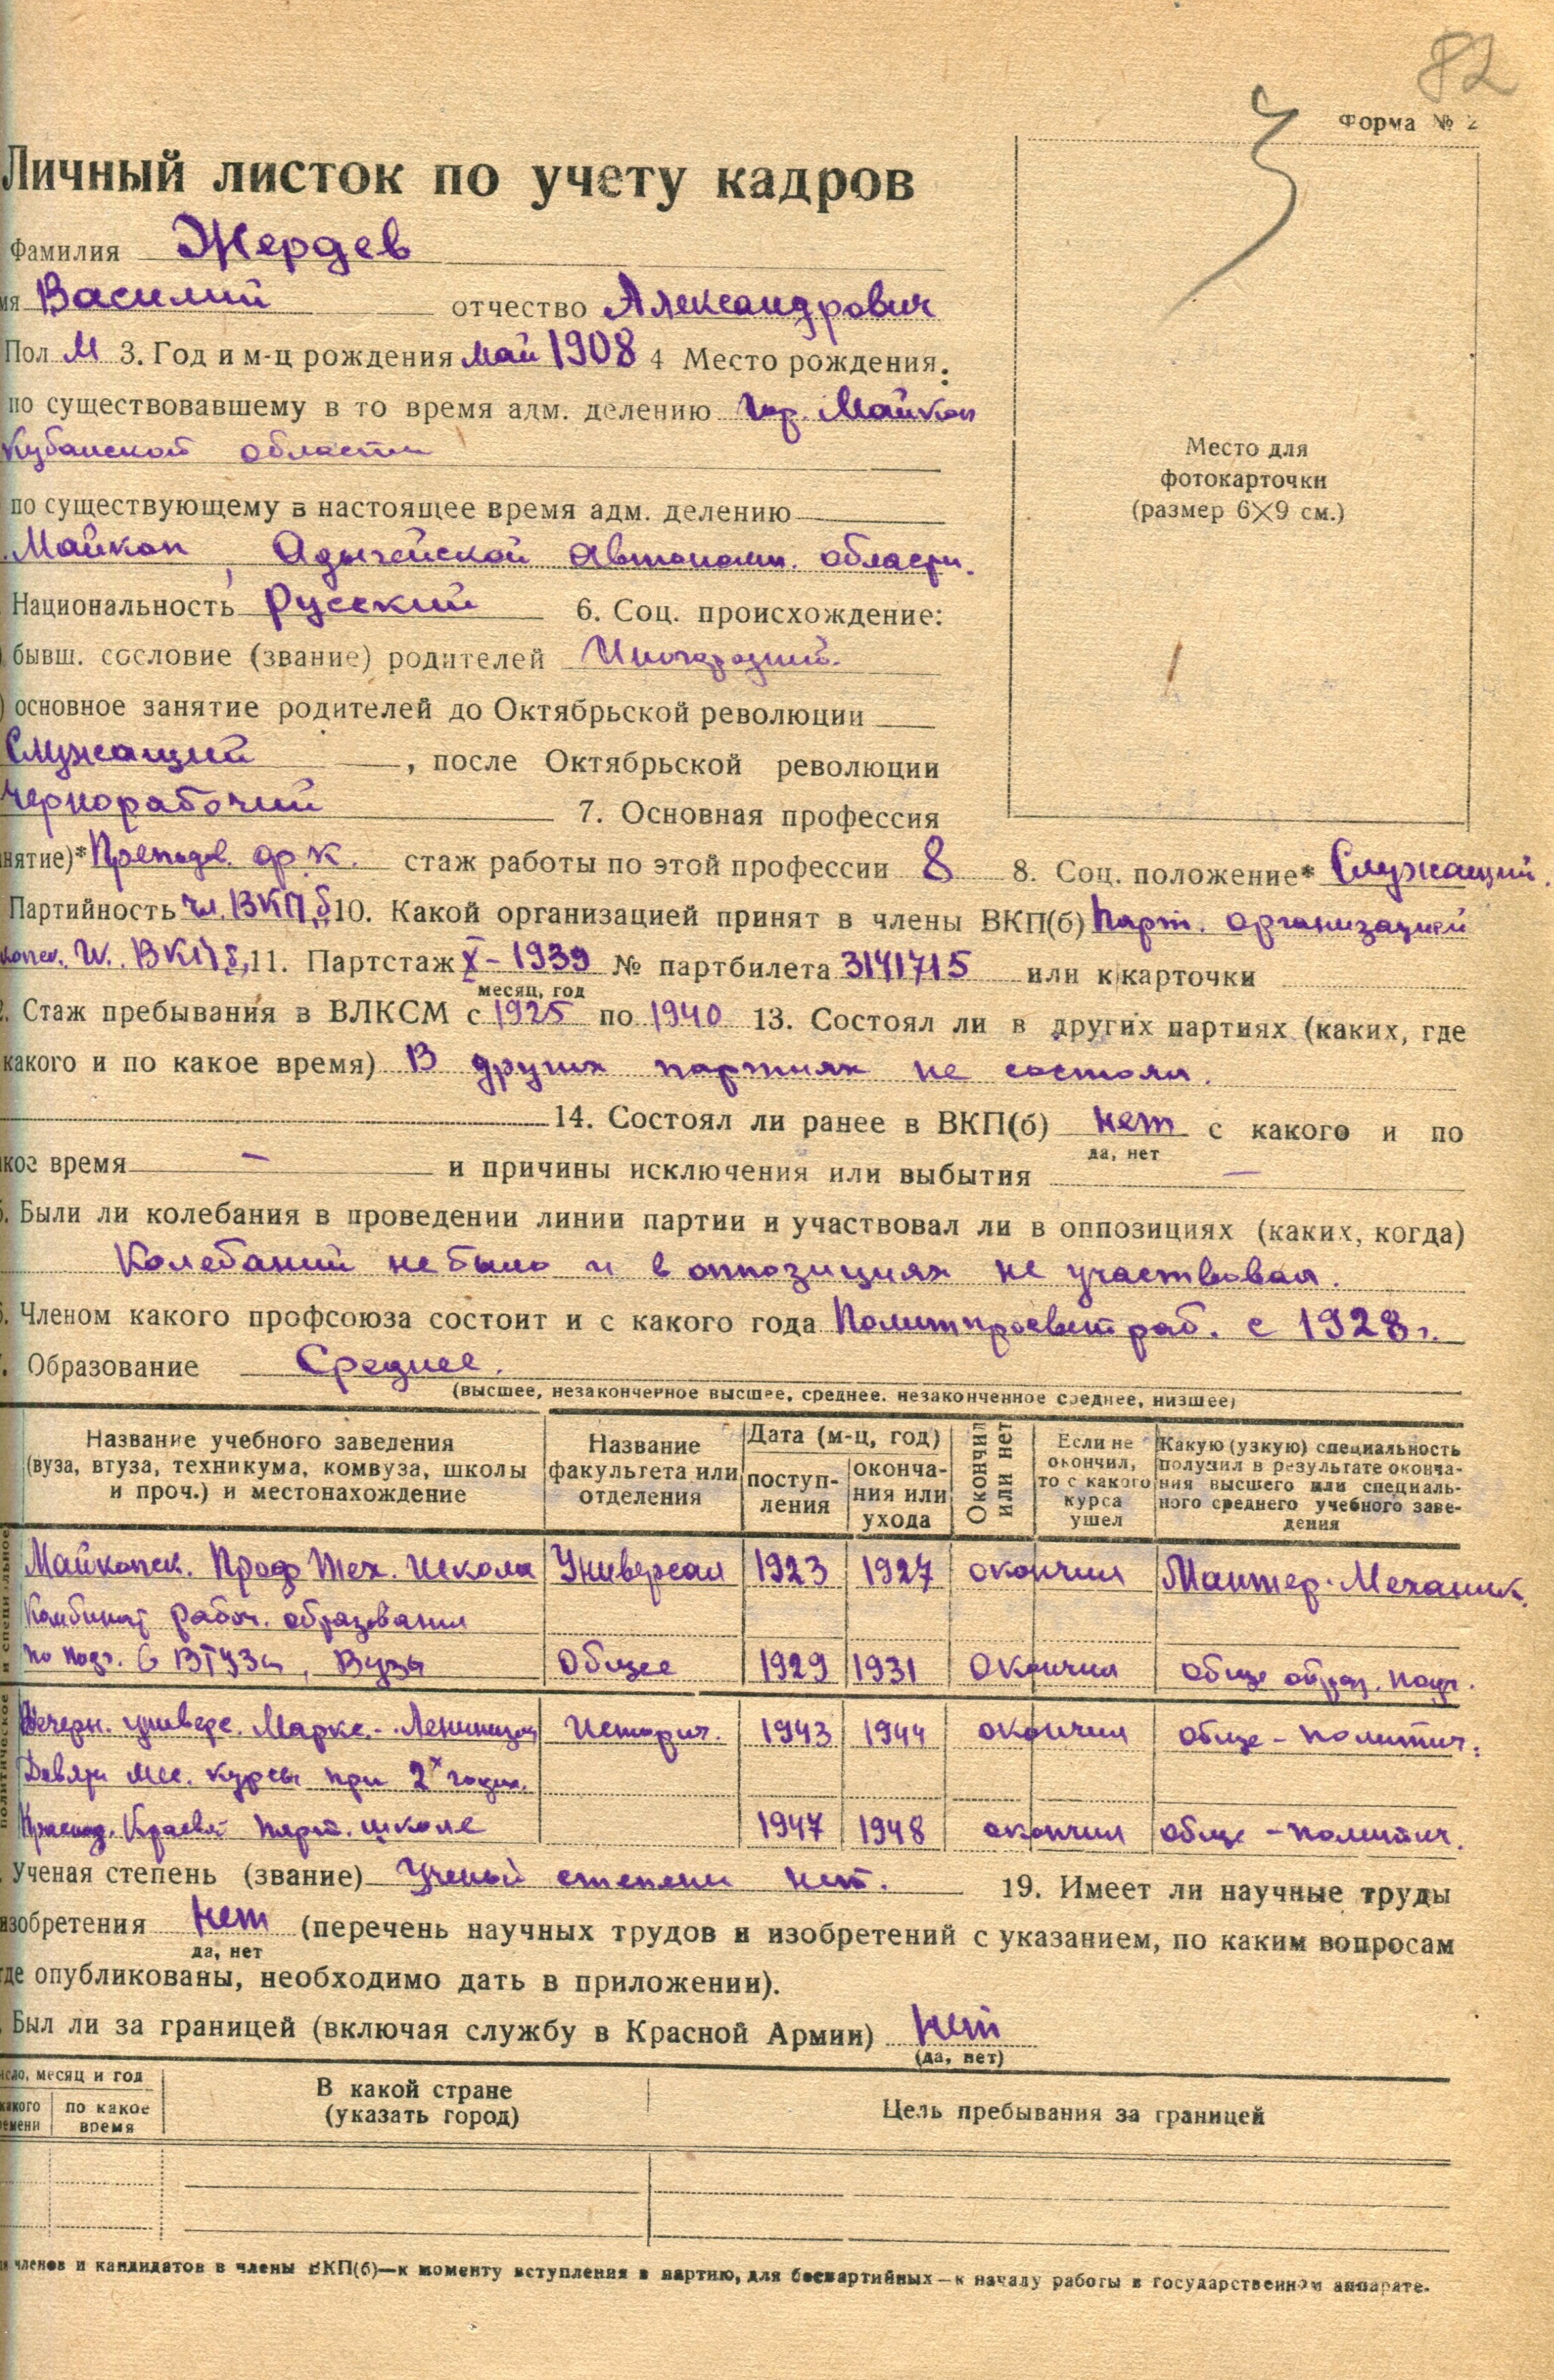 82
Форма № 2
Личный листок по учету кадров
Фамилия Жердев
мя Василий отчество Александрович
Пол М 3. Год и м-ц рождения май 1908 4 Место рождения:
по существовавшему в то время адм. делению гор. Майкоп
Кубанской области
Место для
фотокарточки
(размер 6×9 см.)
по существующему в настоящее время адм. делению
Майкоп, Адыгейской Автономн. области.
Национальность Русский 6. Соц. происхождение:
бывш. сословие (звание) родителей Иногородний.
) основное занятие родителей до Октябрьской революции
Служащий, после Октябрьской революции
Чернорабочий 7. Основная профессия
нятие)* Преподов. ф. к. стаж работы по этой профессии 8 8. Соц. положение* Служащий.
Партийность чл. ВКПб 10. Какой организацией принят в члены ВКП(б) Парт. организацией
ВКПб, 11. Партстаж X – 1939 № партбилета 3141715 или к карточки
месяц, год
. Стаж пребывания в ВЛКСМ с 1925 по 1940 13. Состоял ли в других партиях (каких, где
какого и по какое время) В других партиях не состоял.
14. Состоял ли ранее в ВКП(б) нет с какого и по
да, нет
кое время – и причины исключения или выбытия –
. Были ли колебания в проведении линии партии и участвовал ли в оппозициях (каких, когда)
Колебаний не было и в оппозициях не участвовал.
. Членом какого профсоюза состоит и с какого года Политпросвет раб. с 1928 г.
. Образование Среднее.
(высшее, незаконченное высшее, среднее, незаконченное среднее, низшее)
Название учебного заведения
(вуза, втуза, техникума, комвуза, школы
и проч.) и местонахождение
Название
факультета или
отделения
Дата (м-ц, год)
поступ-
ления
оконча-
ния или
ухода
Окончил
или нет
Если не
окончил,
то с какого
курса
ушел
Какую (узкую) специальность
получил в результате оконча-
ния высшего или специаль-
ного среднего учебного заве-
дения
Майкопск. Проф Тех. школа Универсал 1923 1927 окончил Монтер-Механик.
Комбинат рабоч. образования
по подг. в ВТУЗы, Вузы Общее 1929 1931 Окончил обще образ. подг.
Вечерн. универс. Маркс.-Ленинизм Историч. 1943 1944 окончил обще – политич.
Девяти мес. курсы при 2х годич.
Краснод. Краевой парт. школе 1947 1948 окончил обще – политич.
и специальное
политическое
Ученая степень (звание) Ученой степени нет. 19. Имеет ли научные труды
изобретения нет (перечень научных трудов и изобретений с указанием, по каким вопросам
да, нет
где опубликованы, необходимо дать в приложении).
. Был ли за границей (включая службу в Красной Армии) нет
(да, нет)
исло, месяц и год
какого
емени
по какое
время
В какой стране
(указать город)
Цель пребывания за границей
членов и кандидатов в члены ВКП(б)—к моменту вступления в партию, для беспартийных—к началу работы в государственном аппарате.